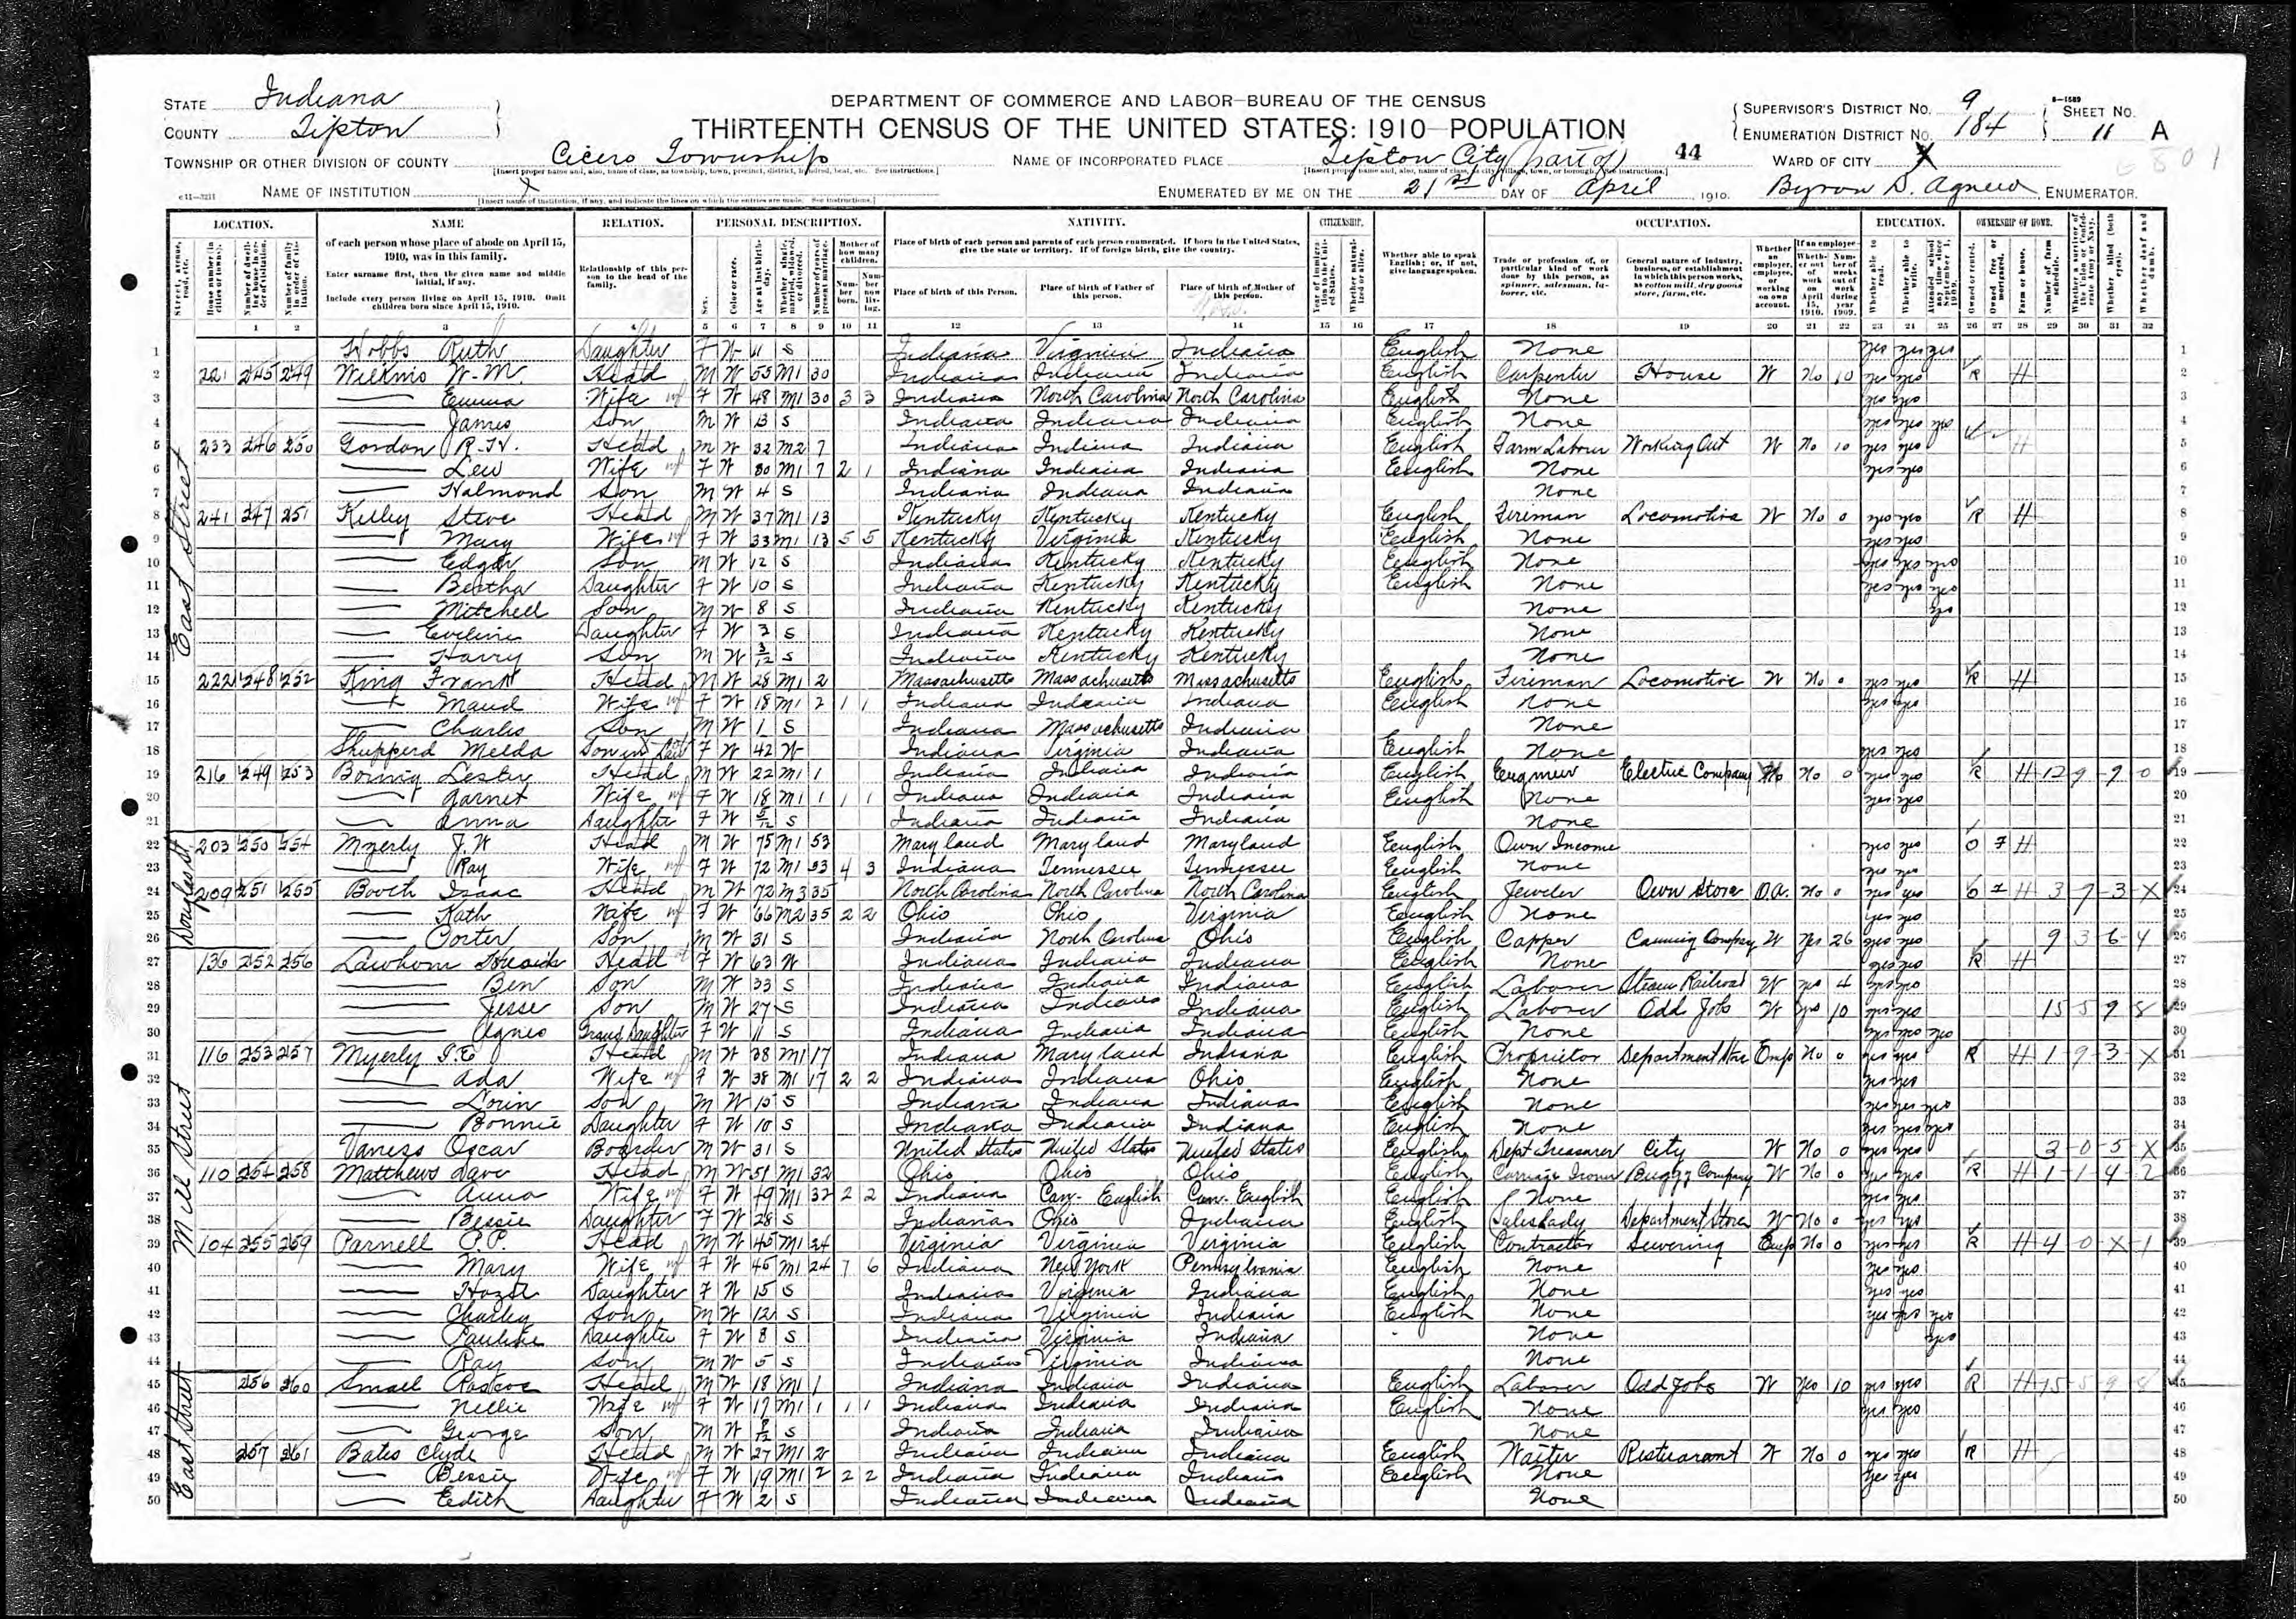 STATE Indiana
COUNTY Tipton
DEPARTMENT OF COMMERCE AND LABOR—BUREAU OF THE CENSUS
THIRTEENTH CENSUS OF THE UNITED STATES: 1910—POPULATION
SUPERVISOR'S DISTRICT NO. 9
ENUMERATION DISTRICT NO. 184
8-1589
SHEET NO. 11 A
TOWNSHIP OR OTHER DIVISION OF COUNTY Cicero Township
NAME OF INCORPORATED PLACE Tipton City (part of) 44
WARD OF CITY X
NAME OF INSTITUTION X
ENUMERATED BY ME ON THE 21st DAY OF April, 1910. Byron D. Agnew, ENUMERATOR.
LOCATION. NAME RELATION. PERSONAL DESCRIPTION. NATIVITY. CITIZENSHIP. OCCUPATION. EDUCATION. OWNERSHIP OF HOME.
of each person whose place of abode on April 15, 1910, was in this family.
Enter surname first, then the given name and middle initial, if any.
Include every person living on April 15, 1910. Omit children born since April 15, 1910.
Relationship of this person to the head of the family.
Place of birth of each person and parents of each person enumerated. If born in the United States, give the state or territory. If of foreign birth, give the country.
Place of birth of this Person. Place of birth of Father of this person. Place of birth of Mother of this person.
Whether able to speak English; or, if not, give language spoken.
Trade or profession of, or particular kind of work done by this person, as spinner, salesman, laborer, etc.
General nature of industry, business, or establishment in which this person works, as cotton mill, dry goods store, farm, etc.
1 2 3 4 5 6 7 8 9 10 11 12 13 14 15 16 17 18 19 20 21 22 23 24 25 26 27 28 29 30 31 32
1 Hobbs Ruth Daughter F W 11 S Indiana Virginia Indiana English None yes yes yes
2 221 245 249 Wilkins W. M. Head M W 55 M1 30 Indiana Indiana Indiana English Carpenter House W No 10 yes yes R H
3 Emma Wife F W 48 M1 30 3 3 Indiana North Carolina North Carolina English None yes yes
4 James Son M W 13 S Indiana Indiana Indiana English None yes yes yes
5 233 246 250 Gordon Head M W 32 M2 7 Indiana Indiana Indiana English Farm Labour Working Out W No 10 yes yes H
6 Lew Wife F W 30 M1 7 2 1 Indiana Indiana Indiana English None yes yes
7 Halmond Son M W 4 S Indiana Indiana Indiana None
8 241 247 251 Kelley Steve Head M W 37 M1 13 Kentucky Kentucky Kentucky English Fireman Locomotive W No 0 yes yes R H
9 Mary Wife F W 33 M1 13 5 5 Kentucky Virginia Kentucky English None yes yes
10 Edgar Son M W 12 S Indiana Kentucky Kentucky English None yes yes yes
11 Bertha Daughter F W 10 S Indiana Kentucky Kentucky English None yes yes yes
12 Mitchell Son M W 8 S Indiana Kentucky Kentucky None yes
13 Eveline Daughter F W 3 S Indiana Kentucky Kentucky None
14 Harry Son M W 3/12 S Indiana Kentucky Kentucky None
15 222 248 252 King Frank Head M W 28 M1 2 Massachusetts Massachusetts Massachusetts English Fireman Locomotive W No 0 yes yes R H
16 Maud Wife F W 18 M1 2 1 1 Indiana Indiana Indiana English None yes yes
17 Charles Son M W 1 S Indiana Massachusetts Indiana None
18 Shupperd Melda F W 42 W Indiana Virginia Indiana English None yes yes
19 216 249 253 Lester Head M W 22 M1 1 Indiana Indiana Indiana English Engineer Electric Company No 0 yes yes R H 12 9 9 0
20 Garnet Wife F W 18 M1 1 1 1 Indiana Indiana Indiana English None yes yes
21 Anna Daughter F W 5/12 S Indiana Indiana Indiana None
22 203 250 254 Myerly J. W Head M W 75 M1 53 Maryland Maryland Maryland English Own Income yes yes O F H
23 Ray Wife F W 72 M1 53 4 3 Indiana Tennessee Tennessee English None yes yes
24 209 251 255 Booth Isaac Head M W 72 M3 35 North Carolina North Carolina North Carolina English Jeweler Own Store O.A. No 0 yes yes O F H 3 7 3 X
25 Kath Wife F W 66 M2 35 2 2 Ohio Ohio Virginia English None yes yes
26 Porter Son M W 31 S Indiana North Carolina Ohio English Capper Canning Company W Yes 26 yes yes 9 3 6 4
27 136 252 256 Lawhorn Head F W 63 W Indiana Indiana Indiana English None yes yes R H
28 Ben Son M W 33 S Indiana Indiana Indiana English Laborer Steam Railroad W yes 4 yes yes
29 Jesse Son M W 27 S Indiana Indiana Indiana English Laborer Odd Jobs W yes 10 yes yes 15 5 9 8
30 Agnes Grand Daughter F W 11 S Indiana Indiana Indiana English None yes yes yes
31 116 253 257 Myerly Head M W 38 M1 17 Indiana Maryland Indiana English Proprietor Department Store Emp No 0 yes yes R H 1 9 3 X
32 Ada Wife F W 38 M1 17 2 2 Indiana Indiana Ohio English None yes yes
33 Lorin Son M W 15 S Indiana Indiana Indiana English None yes yes yes
34 Bonnie Daughter F W 10 S Indiana Indiana Indiana English None yes yes yes
35 Vaness Oscar Boarder M W 31 S United States United States United States English Dept Treasurer City W No 0 yes yes 3 0 5 X
36 110 254 258 Matthews Dave Head M W 51 M1 32 Ohio Ohio Ohio English Carriage Ironer Buggy Company W No 0 yes yes R H 1 1 4 2
37 Anna Wife F W 49 M1 32 2 2 Indiana Can- English Can- English English None yes yes
38 Bessie Daughter F W 28 S Indiana Ohio Indiana English Saleslady Department Store W No 0 yes yes
39 104 255 259 Parnell P. P. Head M W 45 M1 24 Virginia Virginia Virginia English Contractor Sewering Emp No 0 yes yes R H 4 0 X 1
40 Mary Wife F W 45 M1 24 7 6 Indiana New York Pennsylvania English None yes yes
41 Hazel Daughter F W 15 S Indiana Virginia Indiana English None yes yes
42 Charley Son M W 12 S Indiana Virginia Indiana English None yes yes yes
43 Pauline Daughter F W 8 S Indiana Virginia Indiana None yes
44 Ray Son M W 5 S Indiana Virginia Indiana None
45 256 260 Small Roscoe Head M W 18 M1 1 Indiana Indiana Indiana English Laborer Odd Jobs W Yes 10 yes yes R H 15 5 9 8
46 Nellie Wife F W 17 M1 1 1 1 Indiana Indiana Indiana English None yes yes
47 George Son M W 8/12 S Indiana Indiana Indiana None
48 257 261 Bates Clyde Head M W 27 M1 2 Indiana Indiana Indiana English Waiter Resturarant W No 0 yes yes R H
49 Bessie Wife F W 19 M1 2 2 2 Indiana Indiana Indiana English None yes yes
50 Edith Daughter F W 2 S Indiana Indiana Indiana None
East Street
Douglas St
Mill Street
East Street